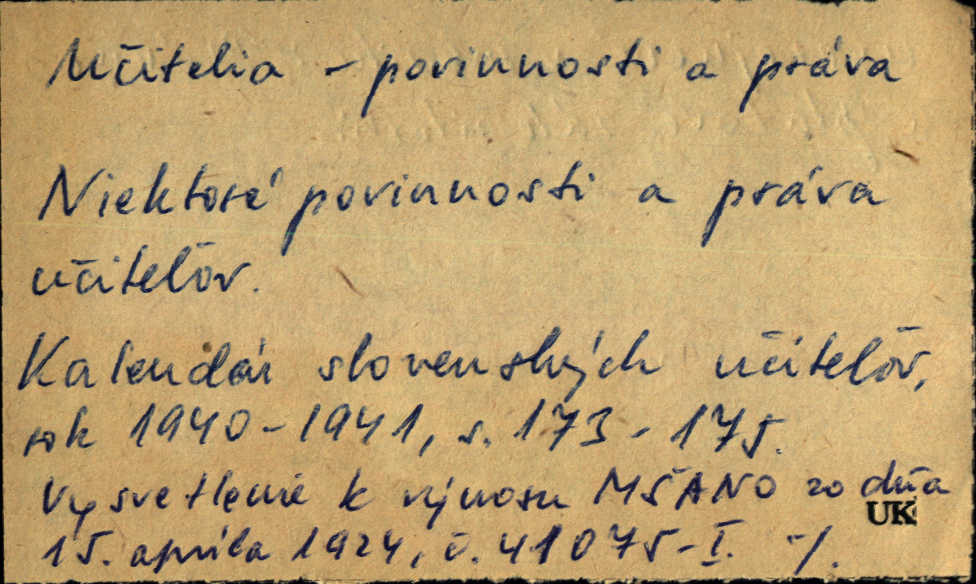 Učitelia - povinnosti a práva
Niektoré povinnosti a práva
učiteľov.
Kalendár slovenských učiteľov,
rok 1940-1941, s. 173-175.
Vysvetlenie k výnosu MŠANO zo dňa
UK
15. apríla 1924, č. 41075-I. -/.